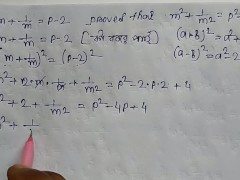 m + 1/m = p-2 proved that m² + 1/m2 = p²
m + 1/m = p-2 (a+b)² = a²
m + 1/m)² = (p-2)² (a-b)² = a²-2
+ 1/m2 = p²-2·p·2 + 4
² + 2 + 1/m2 = p²-4p+4
² + 1/